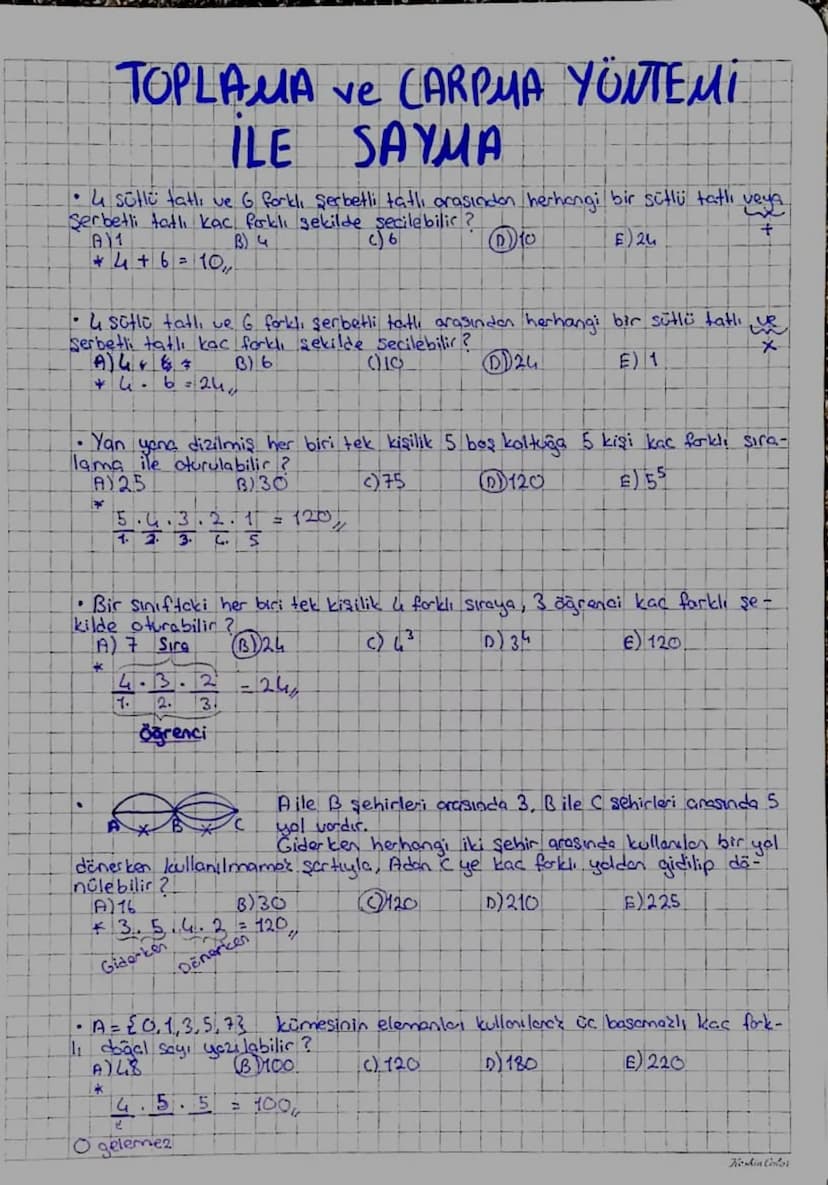 TOPLAMA ve ÇARPMA YÖNTEMİ
İLE SAYMA
• 4 sütlü tatlı ve 6 farklı şerbetli tatlı arasından herhangi bir sütlü tatlı veya
şerbetli tatlı kaç farklı şekilde seçilebilir?
+
A) 1 B) 4 C) 6 D) 10 E) 24
* 4 + 6 = 10,,
• 4 sütlü tatlı ve 6 farklı şerbetli tatlı arasından herhangi bir sütlü tatlı ve
şerbetli tatlı kaç farklı şekilde seçilebilir?
x
A) 4 B) 6 C) 10 D) 24 E) 1
* 4 . 6 = 24,,
• Yan yana dizilmiş her biri tek kişilik 5 boş koltuğa 5 kişi kaç farklı sıra-
lama ile oturulabilir?
A) 25 B) 30 C) 75 D) 120 E) 5⁵
*
5 . 4 . 3 . 2 . 1 = 120,,
1. 2. 3. 4. 5
• Bir sınıftaki her biri tek kişilik 4 farklı sıraya, 3 öğrenci kaç farklı şe-
kilde oturabilir?
A) 7 Sıra B) 24 C) 4³ D) 3⁴ E) 120
*
4 . 3 . 2 = 24,,
1. 2. 3.
Öğrenci
• A ile B şehirleri arasında 3, B ile C şehirleri arasında 5
A x B x C yol vardır.
Giderken herhangi iki şehir arasında kullanılan bir yol
dönerken kullanılmamak şartıyla, A dan C ye kaç farklı yoldan gidilip dö-
nülebilir?
A) 16 B) 30 C) 120 D) 210 E) 225
* 3 . 5 . 4 . 2 = 120,,
Giderken Dönerken
• A = {0,1,3,5,7} kümesinin elemanları kullanılarak üç basamaklı kaç fark-
lı doğal sayı yazılabilir?
A) 48 B) 100 C) 120 D) 180 E) 220
*
4 . 5 . 5 = 100,,
0 gelemez